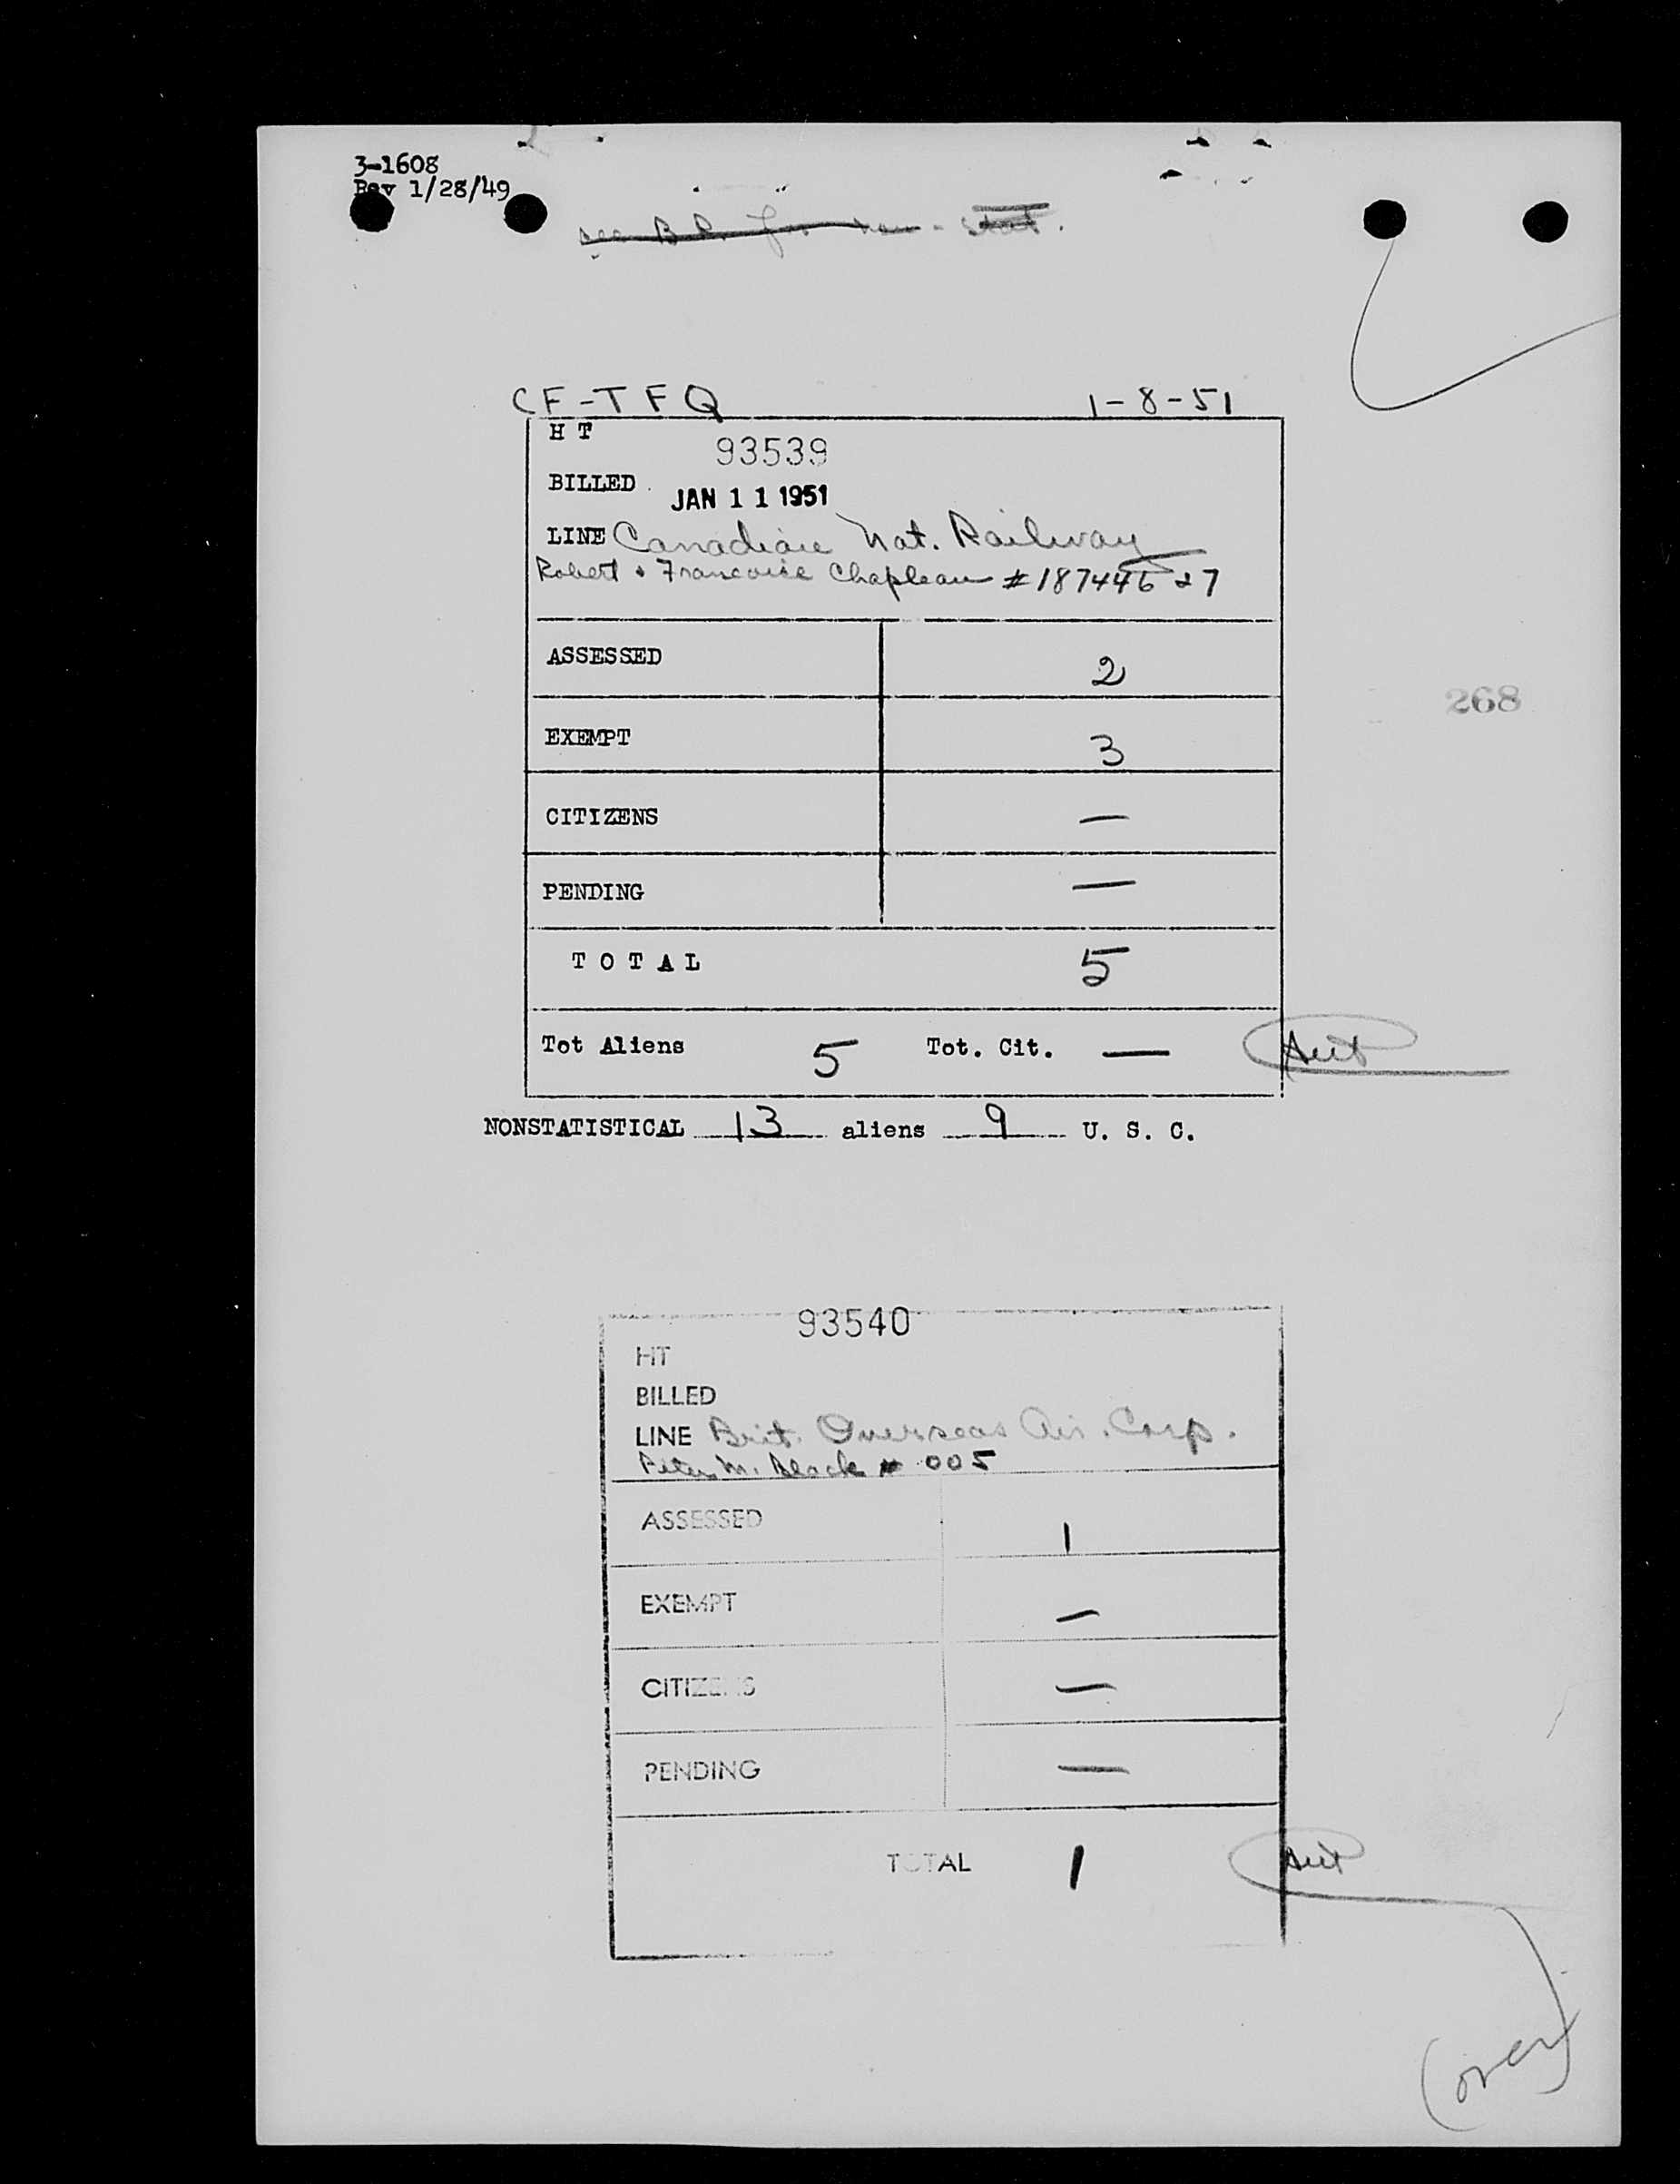 3-1608
Rev 1/28/49
see B.R. for non-stat.
CF-TFQ 1-8-51
H T 93539
BILLED JAN 11 1951
LINE Canadian Nat. Railway
Robert & Francoise Chapleau # 187446 27
ASSESSED 2
268
EXEMPT 3
CITIZENS —
PENDING —
T O T A L 5
Tot Aliens 5 Tot. Cit. —
NONSTATISTICAL 13 aliens 9 U. S. C.
93540
HT
BILLED
LINE Brit. Overseas Air. Corp.
Peter M. Black # 005
ASSESSED 1
EXEMPT —
CITIZENS —
PENDING —
TOTAL 1
(over)